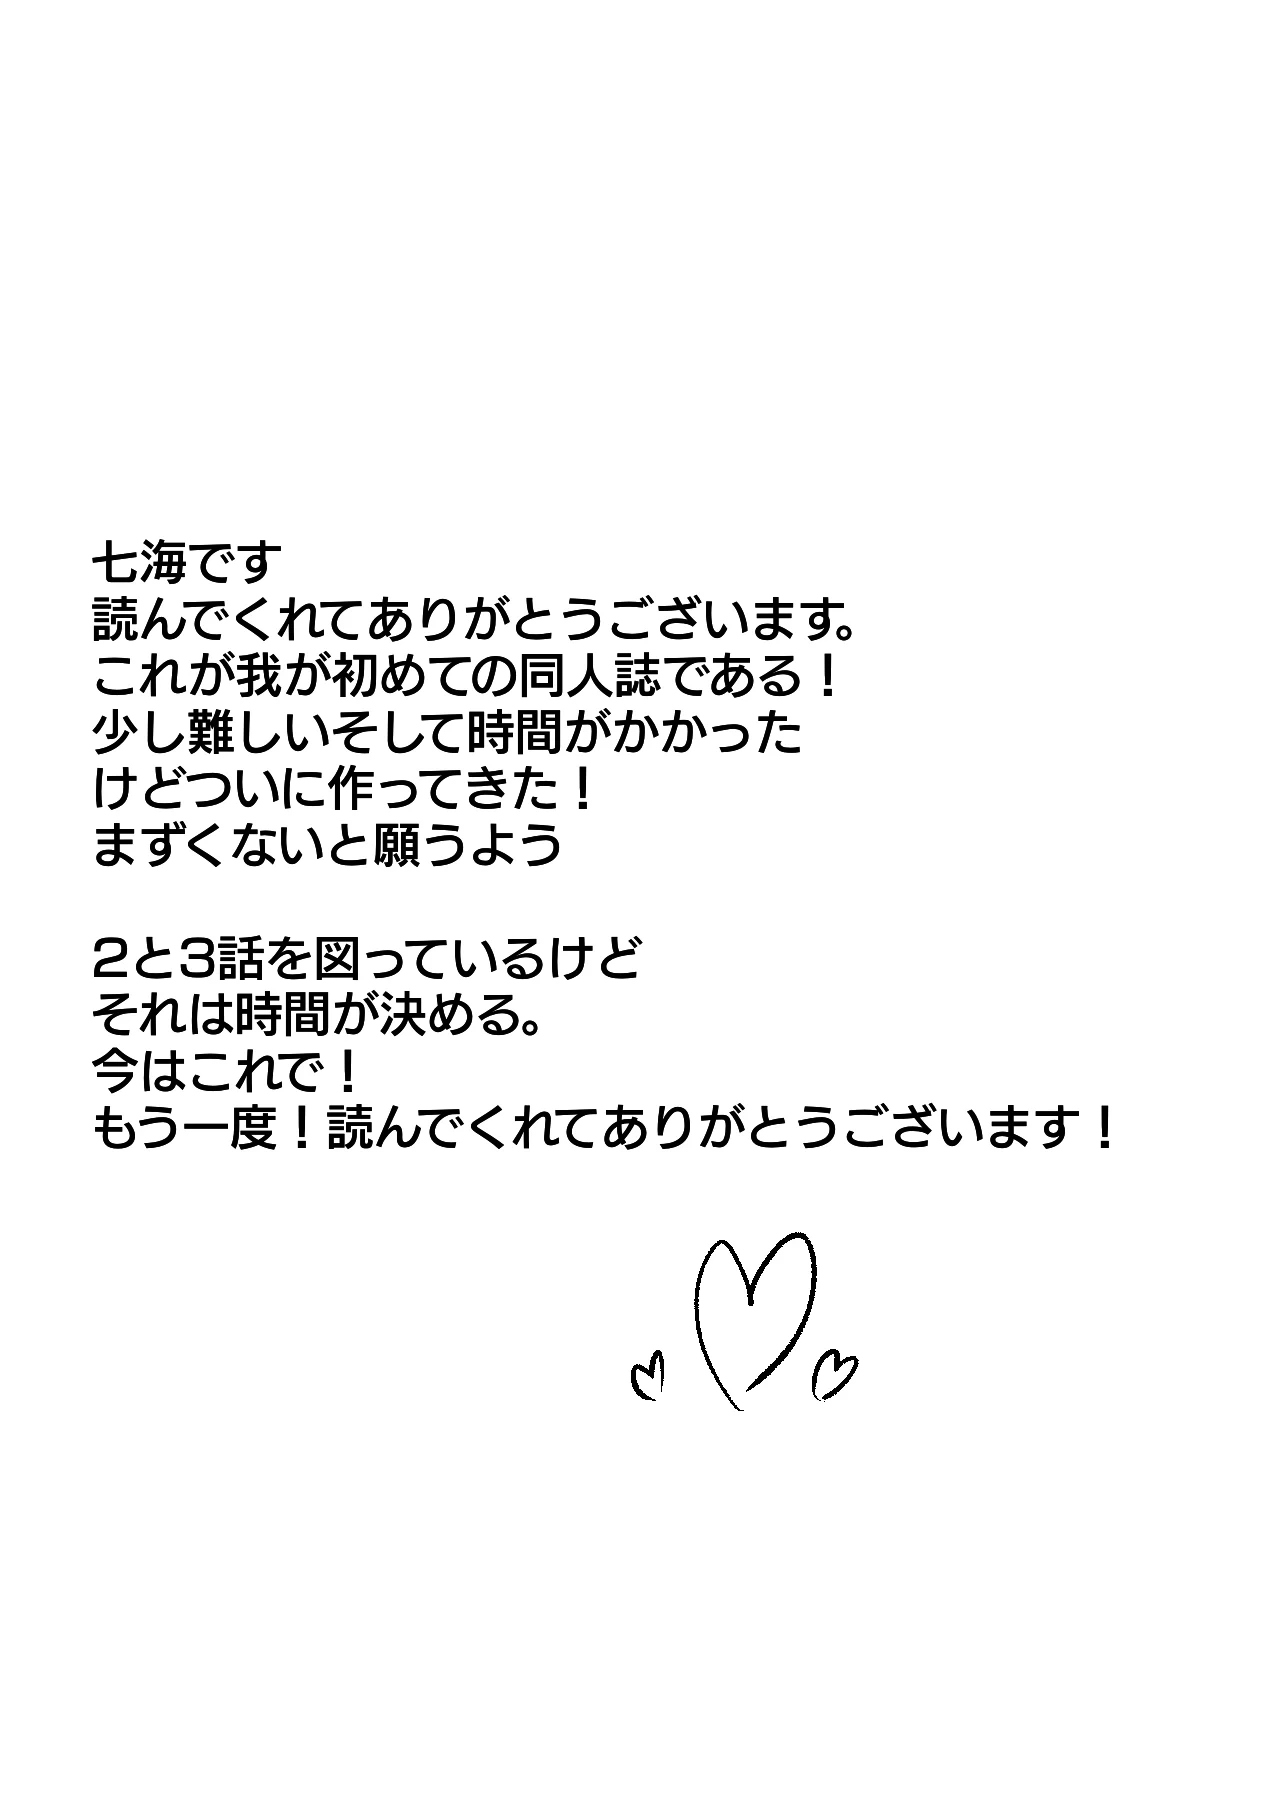 七海です
読んでくれてありがとうございます。
これが我が初めての同人誌である！
少し難しいそして時間がかかった
けどついに作ってきた！
まずくないと願うよう
２と３話を図っているけど
それは時間が決める。
今はこれで！
もう一度！読んでくれてありがとうございます！